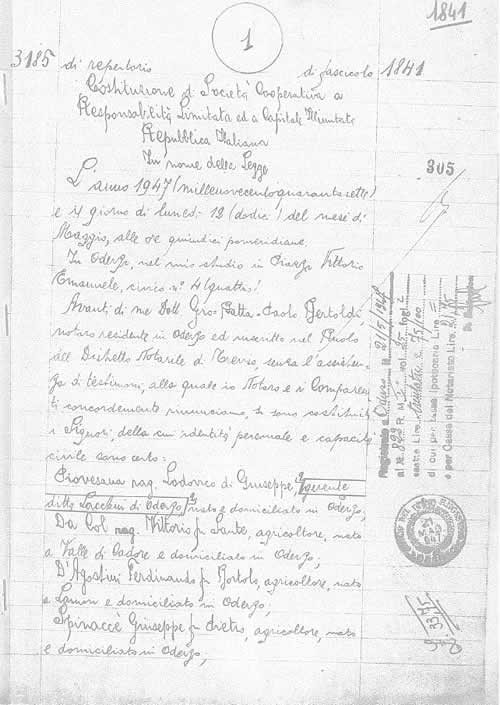 1841
1
3185 di repertorio di fascicolo 1841
Costituzione di Società Cooperativa a
Responsabilità Limitata ed a Capitale Illimitato
Repubblica Italiana
In nome della Legge
L'anno 1947 (millenovecentoquarantasette)
e il giorno di lunedì 12 (dodici) del mese di
Maggio, alle ore quindici pomeridiane.
In Oderzo, nel mio studio in Piazza Vittorio
Emanuele, civico n° 4 (quattro)
Avanti di me Dott. Gio. Batta Paolo Bertoldi,
notaro residente in Oderzo ed inscritto nel Ruolo
del Distretto Notarile di Treviso, senza l'assisten-
za di testimoni, alla quale io Notaro e i Comparen-
ti concordemente rinunciamo, si sono costituiti
i Signori, della cui identità personale e capacità
civile sono certo:
Piovesana rag. Lodovico di Giuseppe, gerente
ditta Zacchini di Oderzo, nato e domiciliato in Oderzo,
Da Col rag. Vittorio fu Sante, agricoltore, nato
a Valle di Cadore e domiciliato in Oderzo;
D'Agostini Ferdinando fu Bortolo, agricoltore, nato
a Lamon e domiciliato in Oderzo;
Spinaccè Giuseppe fu Pietro, agricoltore, nato
e domiciliato in Oderzo,
305
Registrato a Oderzo il 21/5/1947
al N. 822 R. M. vol. fogl.
esatte Lire
di cui per tassa ipotecaria Lire
e per Cassa del Notariato Lire
21
MAG
947